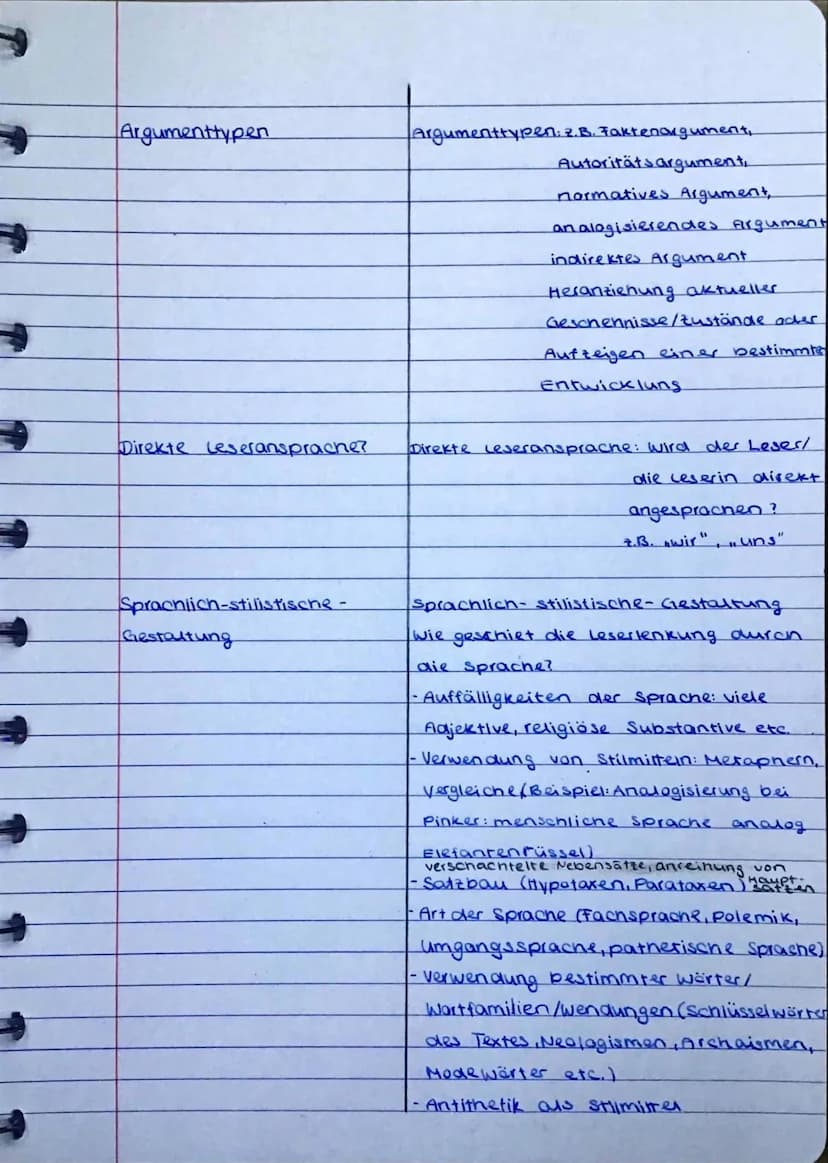 Argumenttypen
Argumenttypen: z.B. Faktenargument,
Autoritätsargument,
normatives Argument,
analogisierendes Argument
indirektes Argument
Heranziehung aktueller
Geschehnisse/Zustände oder
Aufzeigen einer bestimmten
Entwicklung
Direkte Leseransprache?
Direkte Leseransprache: Wird der Leser/
die Leserin direkt
angesprochen?
z.B. „wir“, „uns“
Sprachlich-stilistische-
Gestaltung
Sprachlich-stilistische-Gestaltung
Wie geschiet die Leserlenkung durch
die Sprache?
- Auffälligkeiten der Sprache: viele
Adjektive, religiöse Substantive etc.
- Verwendung von Stilmitteln: Metaphern,
Vergleiche (Beispiel: Analogisierung bei
Pinker: menschliche Sprache analog
Elefantenrüssel)
verschachtelte Nebensätze, anreihung von Haupt-
sätzen
- Satzbau (Hypotaxen, Parataxen)
- Art der Sprache (Fachsprache, Polemik,
Umgangssprache, pathetische Sprache)
- Verwendung bestimmter Wörter/
Wortfamilien/Wendungen (Schlüsselwörter
des Textes, Neologismen, Archaismen,
Modewörter etc.)
- Antithetik als Stilmittel